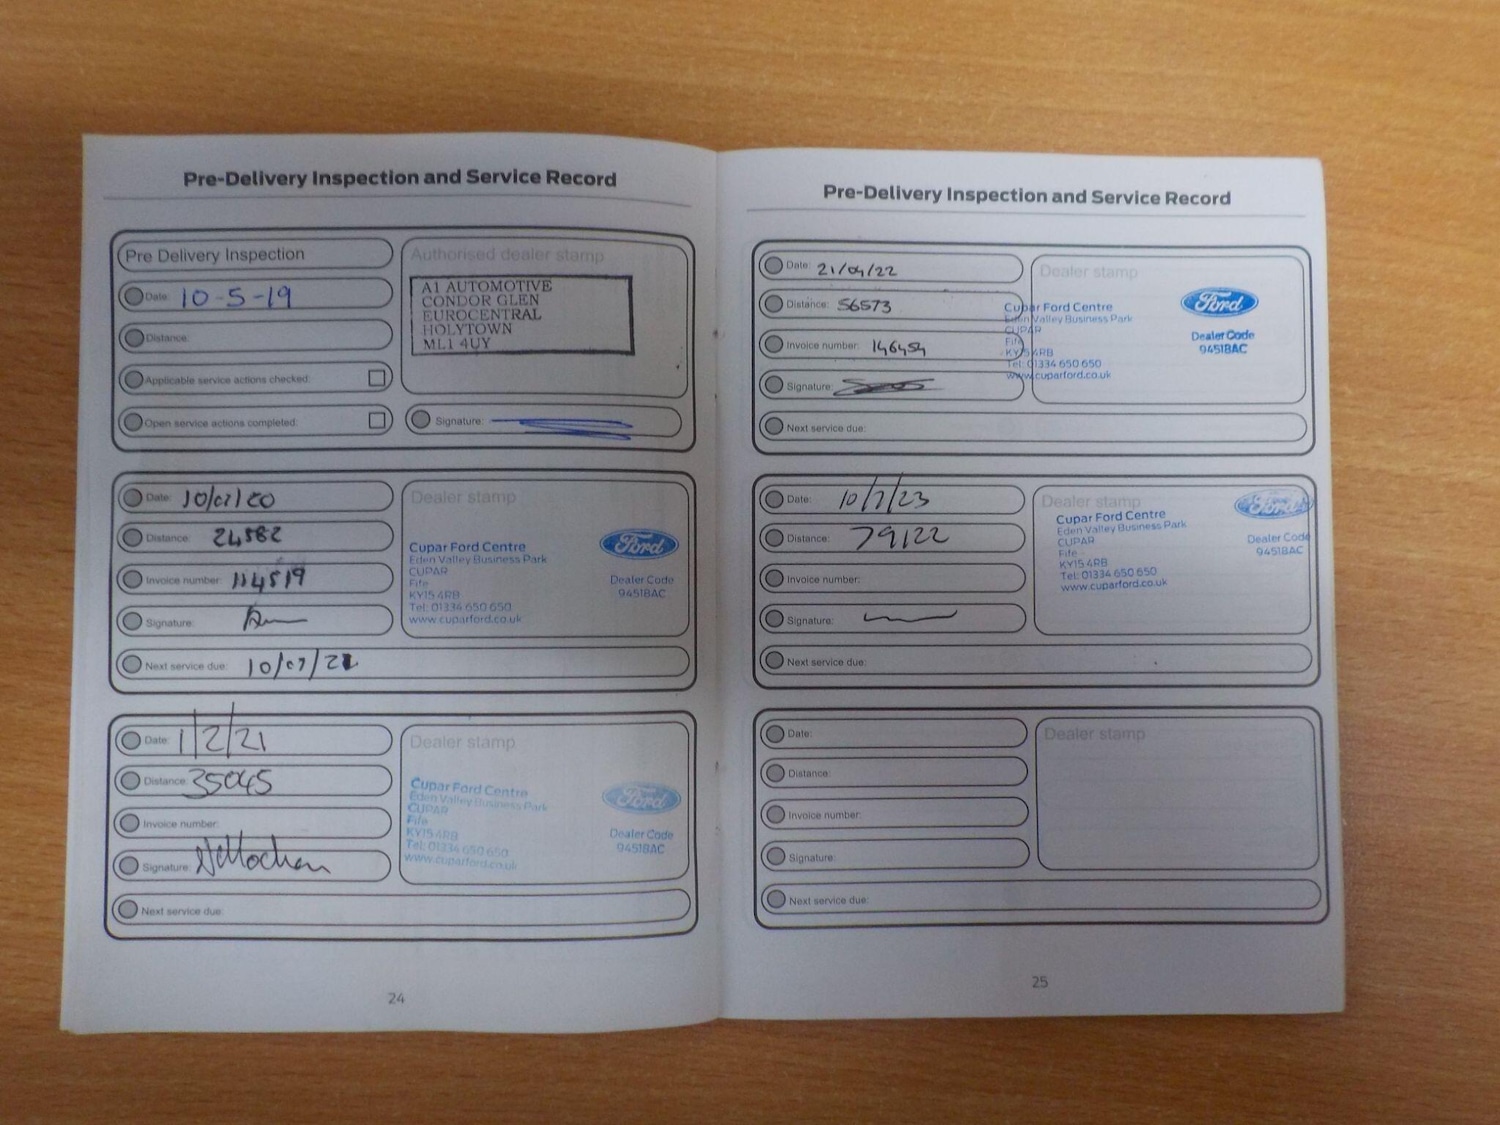 Pre-Delivery Inspection and Service Record
Pre Delivery Inspection
Date: 10-5-19
Distance:
Applicable service actions checked:
Open service actions completed:
Authorised dealer stamp
A1 AUTOMOTIVE
CONDOR GLEN
EUROCENTRAL
HOLYTOWN
ML1 4UY
Signature:
Date: 10/07/20
Distance: 24582
Invoice number: 114519
Signature:
Next service due: 10/07/21
Dealer stamp
Cupar Ford Centre
Eden Valley Business Park
CUPAR
Fife
KY15 4RB
Tel: 01334 650 650
www.cuparford.co.uk
Ford
Dealer Code
94518AC
Date: 1/2/21
Distance: 35045
Invoice number:
Signature:
Next service due:
Dealer stamp
Cupar Ford Centre
Eden Valley Business Park
CUPAR
Fife
KY15 4RB
Tel: 01334 650 650
www.cuparford.co.uk
Ford
Dealer Code
94518AC
24
Pre-Delivery Inspection and Service Record
Date: 21/04/22
Distance: 56573
Invoice number: 146454
Signature:
Next service due:
Dealer stamp
Cupar Ford Centre
Eden Valley Business Park
CUPAR
Fife
KY15 4RB
Tel: 01334 650 650
www.cuparford.co.uk
Ford
Dealer Code
94518AC
Date: 10/7/23
Distance: 79122
Invoice number:
Signature:
Next service due:
Dealer stamp
Cupar Ford Centre
Eden Valley Business Park
CUPAR
Fife
KY15 4RB
Tel: 01334 650 650
www.cuparford.co.uk
Ford
Dealer Code
94518AC
Date:
Distance:
Invoice number:
Signature:
Next service due:
Dealer stamp
25